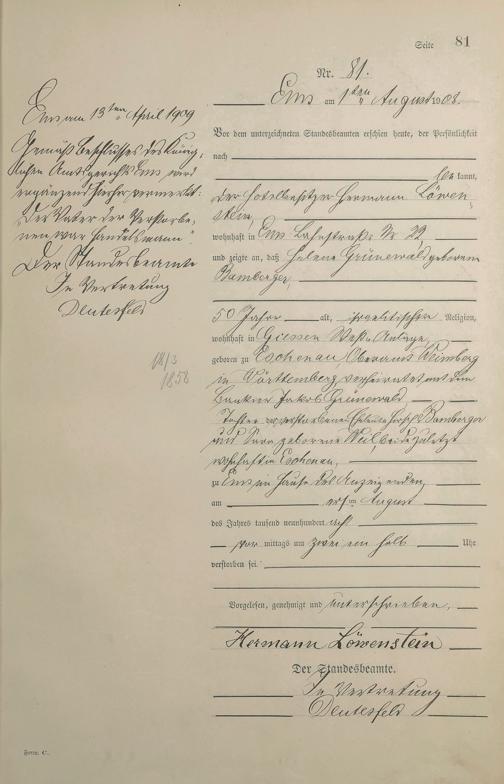 Seite 81
Nr. 81.
Ems am 1ten August 1908.
Vor dem unterzeichneten Standesbeamten erschien heute, der Persönlichkeit
nach
be kannt,
der Hotelbesitzer Hermann Löwen,
stein,
wohnhaft in Ems Lahnstraße Nr 22,
und zeigte an, daß Helene Grünewald geborene
Bamberger,
50 Jahre alt, israelitischer Religion,
wohnhaft in Giessen West Anlage,
geboren zu Eschenau, Oberamts Weinsberg
in Württemberg, verheiratet mit dem
Bankier Jakob Grünewald,
Tochter verstorbenen Eheleute Joseph Bamberger
und Sara geborene Weil, beide zuletzt
wohnhaft in Eschenau,
zu Ems im Hause des Anzeigenden,
am ersten August
des Jahres tausend neunhundert acht
vor mittags um zwei ein halb Uhr
verstorben sei.
Vorgelesen, genehmigt und unterschrieben,
Hermann Löwenstein
Der Standesbeamte.
In Vertretung
Deutesfeld
Ems am 13ten April 1909
Gemäß Beschlusses des König,
lichen Amtsgerichts Ems wird
ergänzend hierher vermerkt:
Der Vater der Verstorbe,
nen war Handelsmann".
Der Standesbeamte
In Vertretung
Deutesfeld
1858
Form. C.